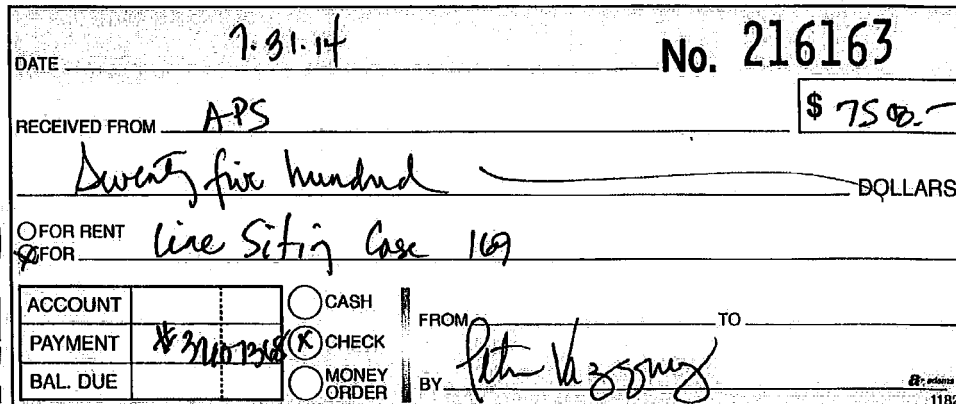 DATE 7.31.14 No. 216163
RECEIVED FROM APS $ 7500.-
Seventy five hundred DOLLARS
FOR RENT
FOR Line Siting Case 169
ACCOUNT CASH
PAYMENT CHECK
BAL. DUE MONEY ORDER
FROM TO
BY
adams
1182